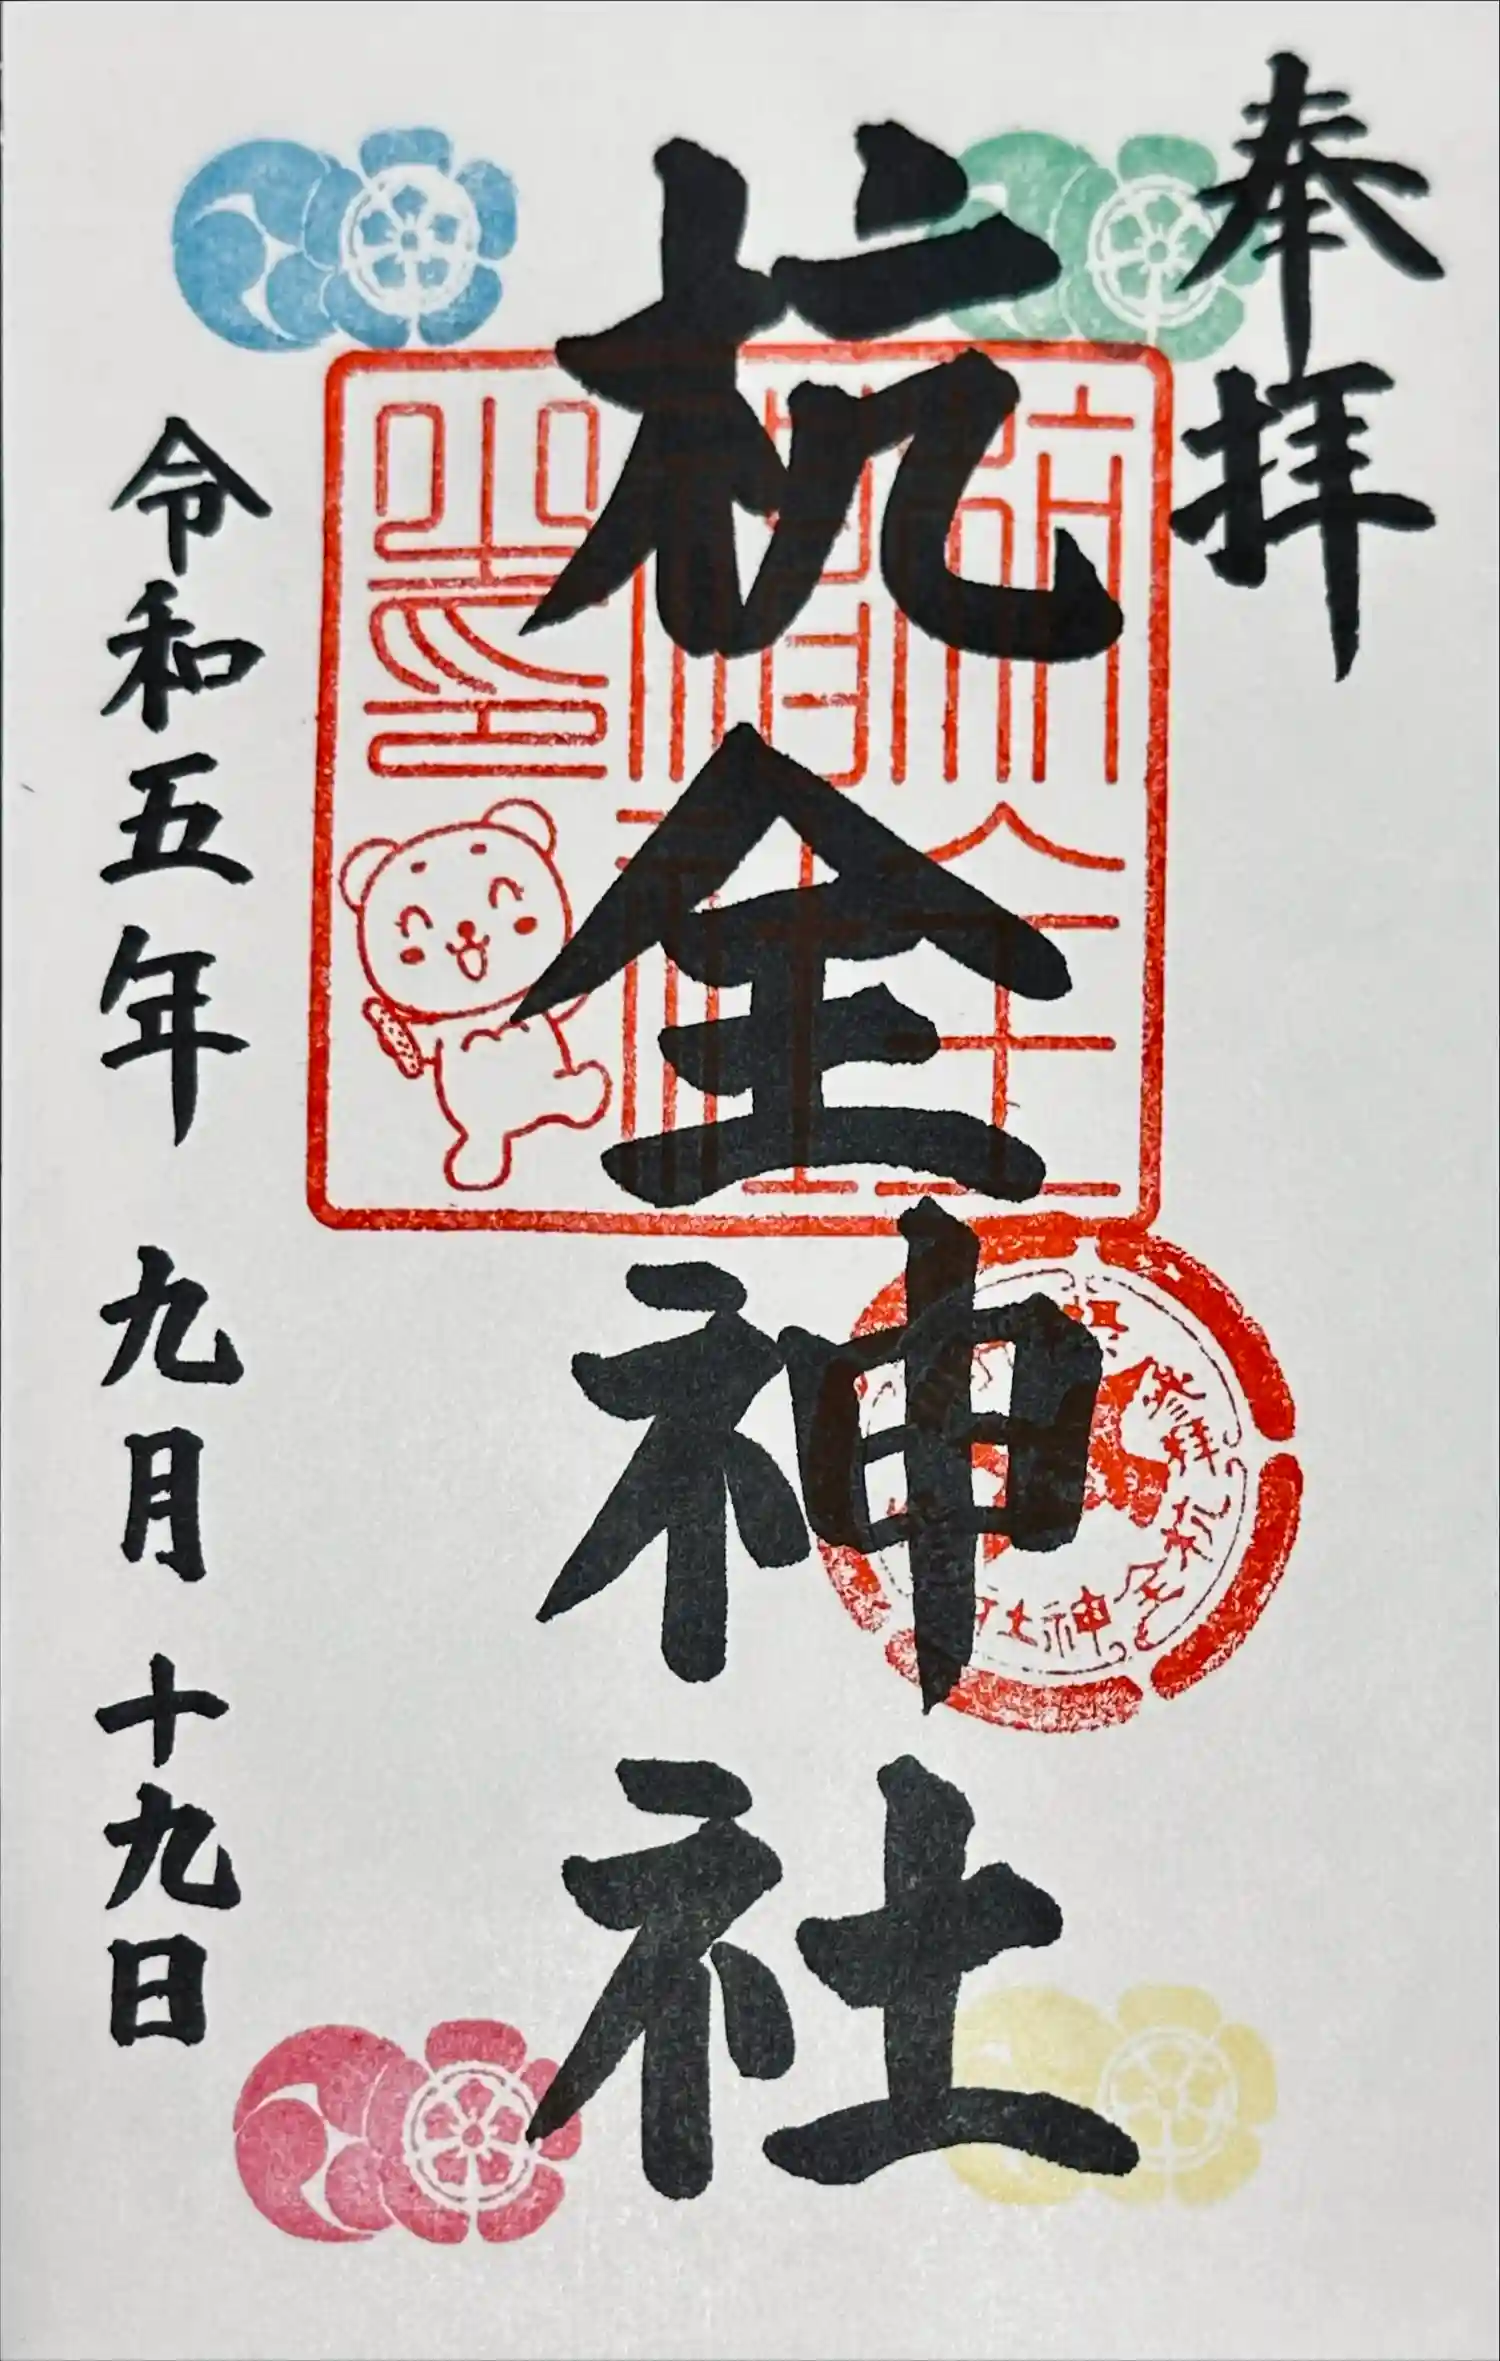 奉拝
杭全神社
杭全神社之印
参拝 杭全神社
令和五年 九月 十九日